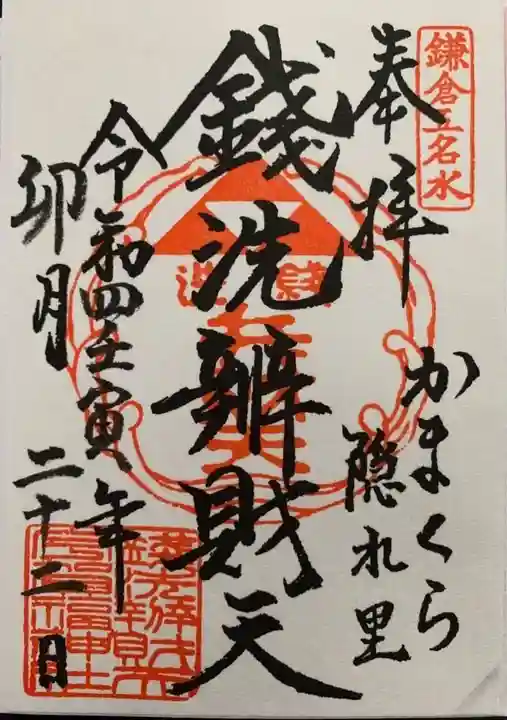 鎌倉五名水
奉拝
かまくら
隠れ里
銭洗辨財天
令和四壬寅年
卯月二十二日